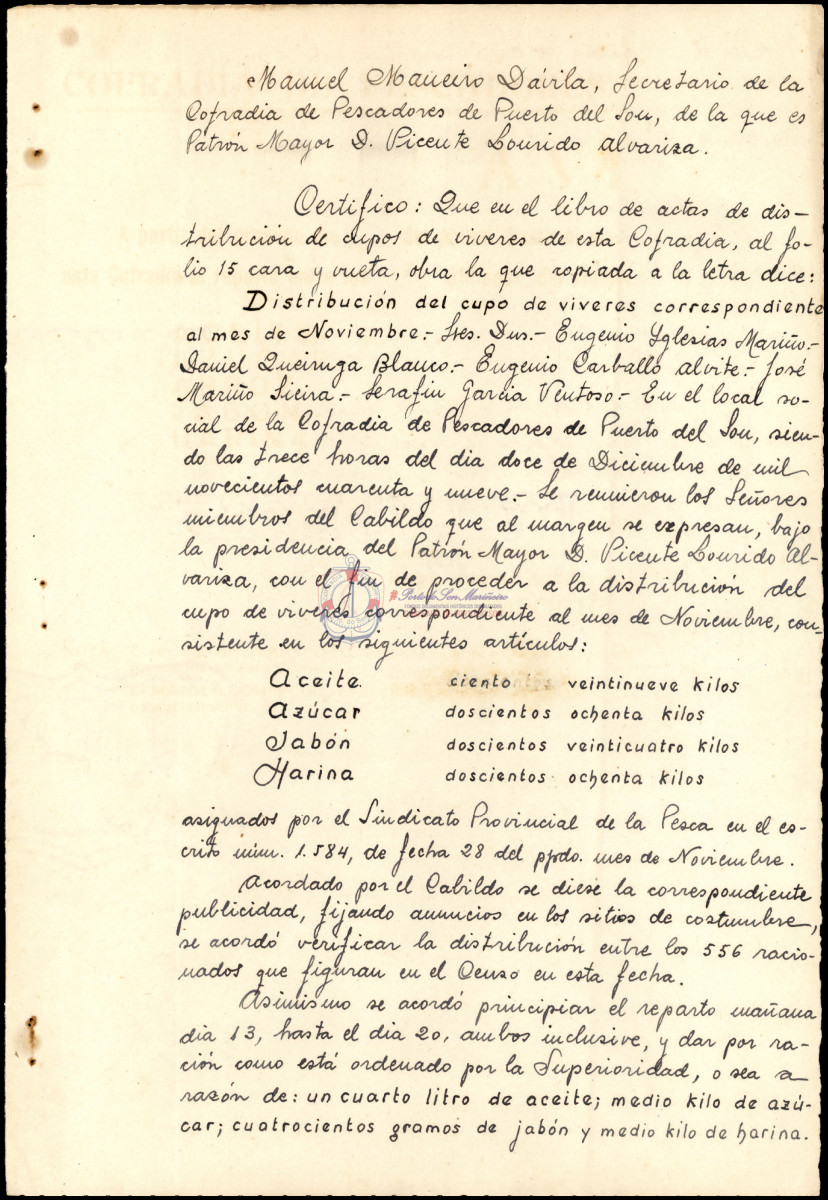 Manuel Maneiro Dávila, Secretario de la
Cofradia de Pescadores de Puerto del Son, de la que es
Patrón Mayor D. Vicente Lourido Alvariza.
Certifico: Que en el libro de actas de dis-
tribución de cupos de viveres de esta Cofradia, al fo-
lio 15 cara y vueta, obra la que copiada a la letra dice:
Distribución del cupo de viveres correspondiente
al mes de Noviembre.- Sres. Dns.- Eugenio Yglesias Mariño.-
Daniel Queiruga Blanco.- Eugenio Carballo Alvite.- José
Mariño Sieira.- Serafin Garcia Ventoso.- En el local so-
cial de la Cofradia de Pescadores de Puerto del Son, sien-
do las trece horas del dia doce de Diciembre de mil
novecientos cuarenta y nueve.- Se reunieron los Señores
miembros del Cabildo que al margen se expresan, bajo
la presidencia del Patrón Mayor D. Vicente Lourido Al-
variza, con el fin de proceder a la distribución del
#PortodoSonMariñeiro
cupo de viveres correspondiente al mes de Noviembre, con-
sistente en los siguientes artículos:
Aceite ciento veintinueve kilos
Azúcar doscientos ochenta kilos
Jabón doscientos veinticuatro kilos
Harina doscientos ochenta kilos
asignados por el Sindicato Provincial de la Pesca en el es-
crito núm. 1.584, de fecha 28 del ppdo. mes de Noviembre.
Acordado por el Cabildo se diese la correspondiente
publicidad, fijando anuncios en los sitios de costumbre,
se acordó verificar la distribución entre los 556 racio-
nados que figuran en el Censo en esta fecha.
Asimismo se acordó principiar el reparto mañana
dia 13, hasta el dia 20, ambos inclusive, y dar por ra-
ción como está ordenado por la Superioridad, o sea a
razón de: un cuarto litro de aceite; medio kilo de azú-
car; cuatrocientos gramos de jabón y medio kilo de harina.